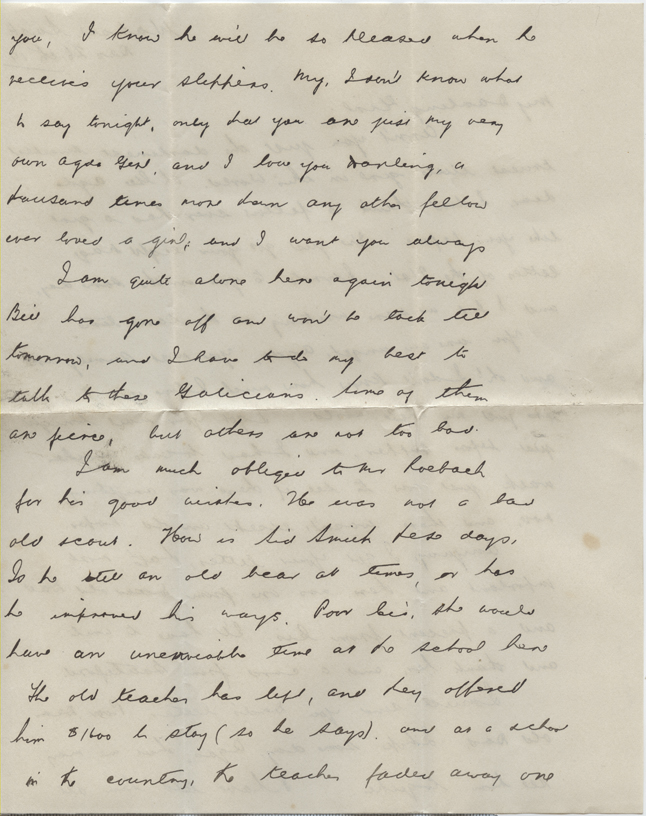 you, I know he will be so pleased when he
receives your slippers. My, I don't know what
to say tonight, only that you are just my very
own Girl, and I love you Darling, a
thousand times more than any other fellow
ever loved a girl; and I want you always
I am quite alone here again tonight
Bill has gone off and won't be back till
tomorrow, and I have to do my best to
talk to these Galicians. Some of them
are fierce, but others are not too bad.
I am much obliged to Mr Roebach
for his good wishes. He was not a bad
old scout. How is Sid Smith these days,
Is he still an old bear at times, or has
he improved his ways. Poor she would
have an unenviable time at the school here
The old teacher has left, and they offered
him $1600 to stay (so he says). and as a school
in the country, the teacher faded away one